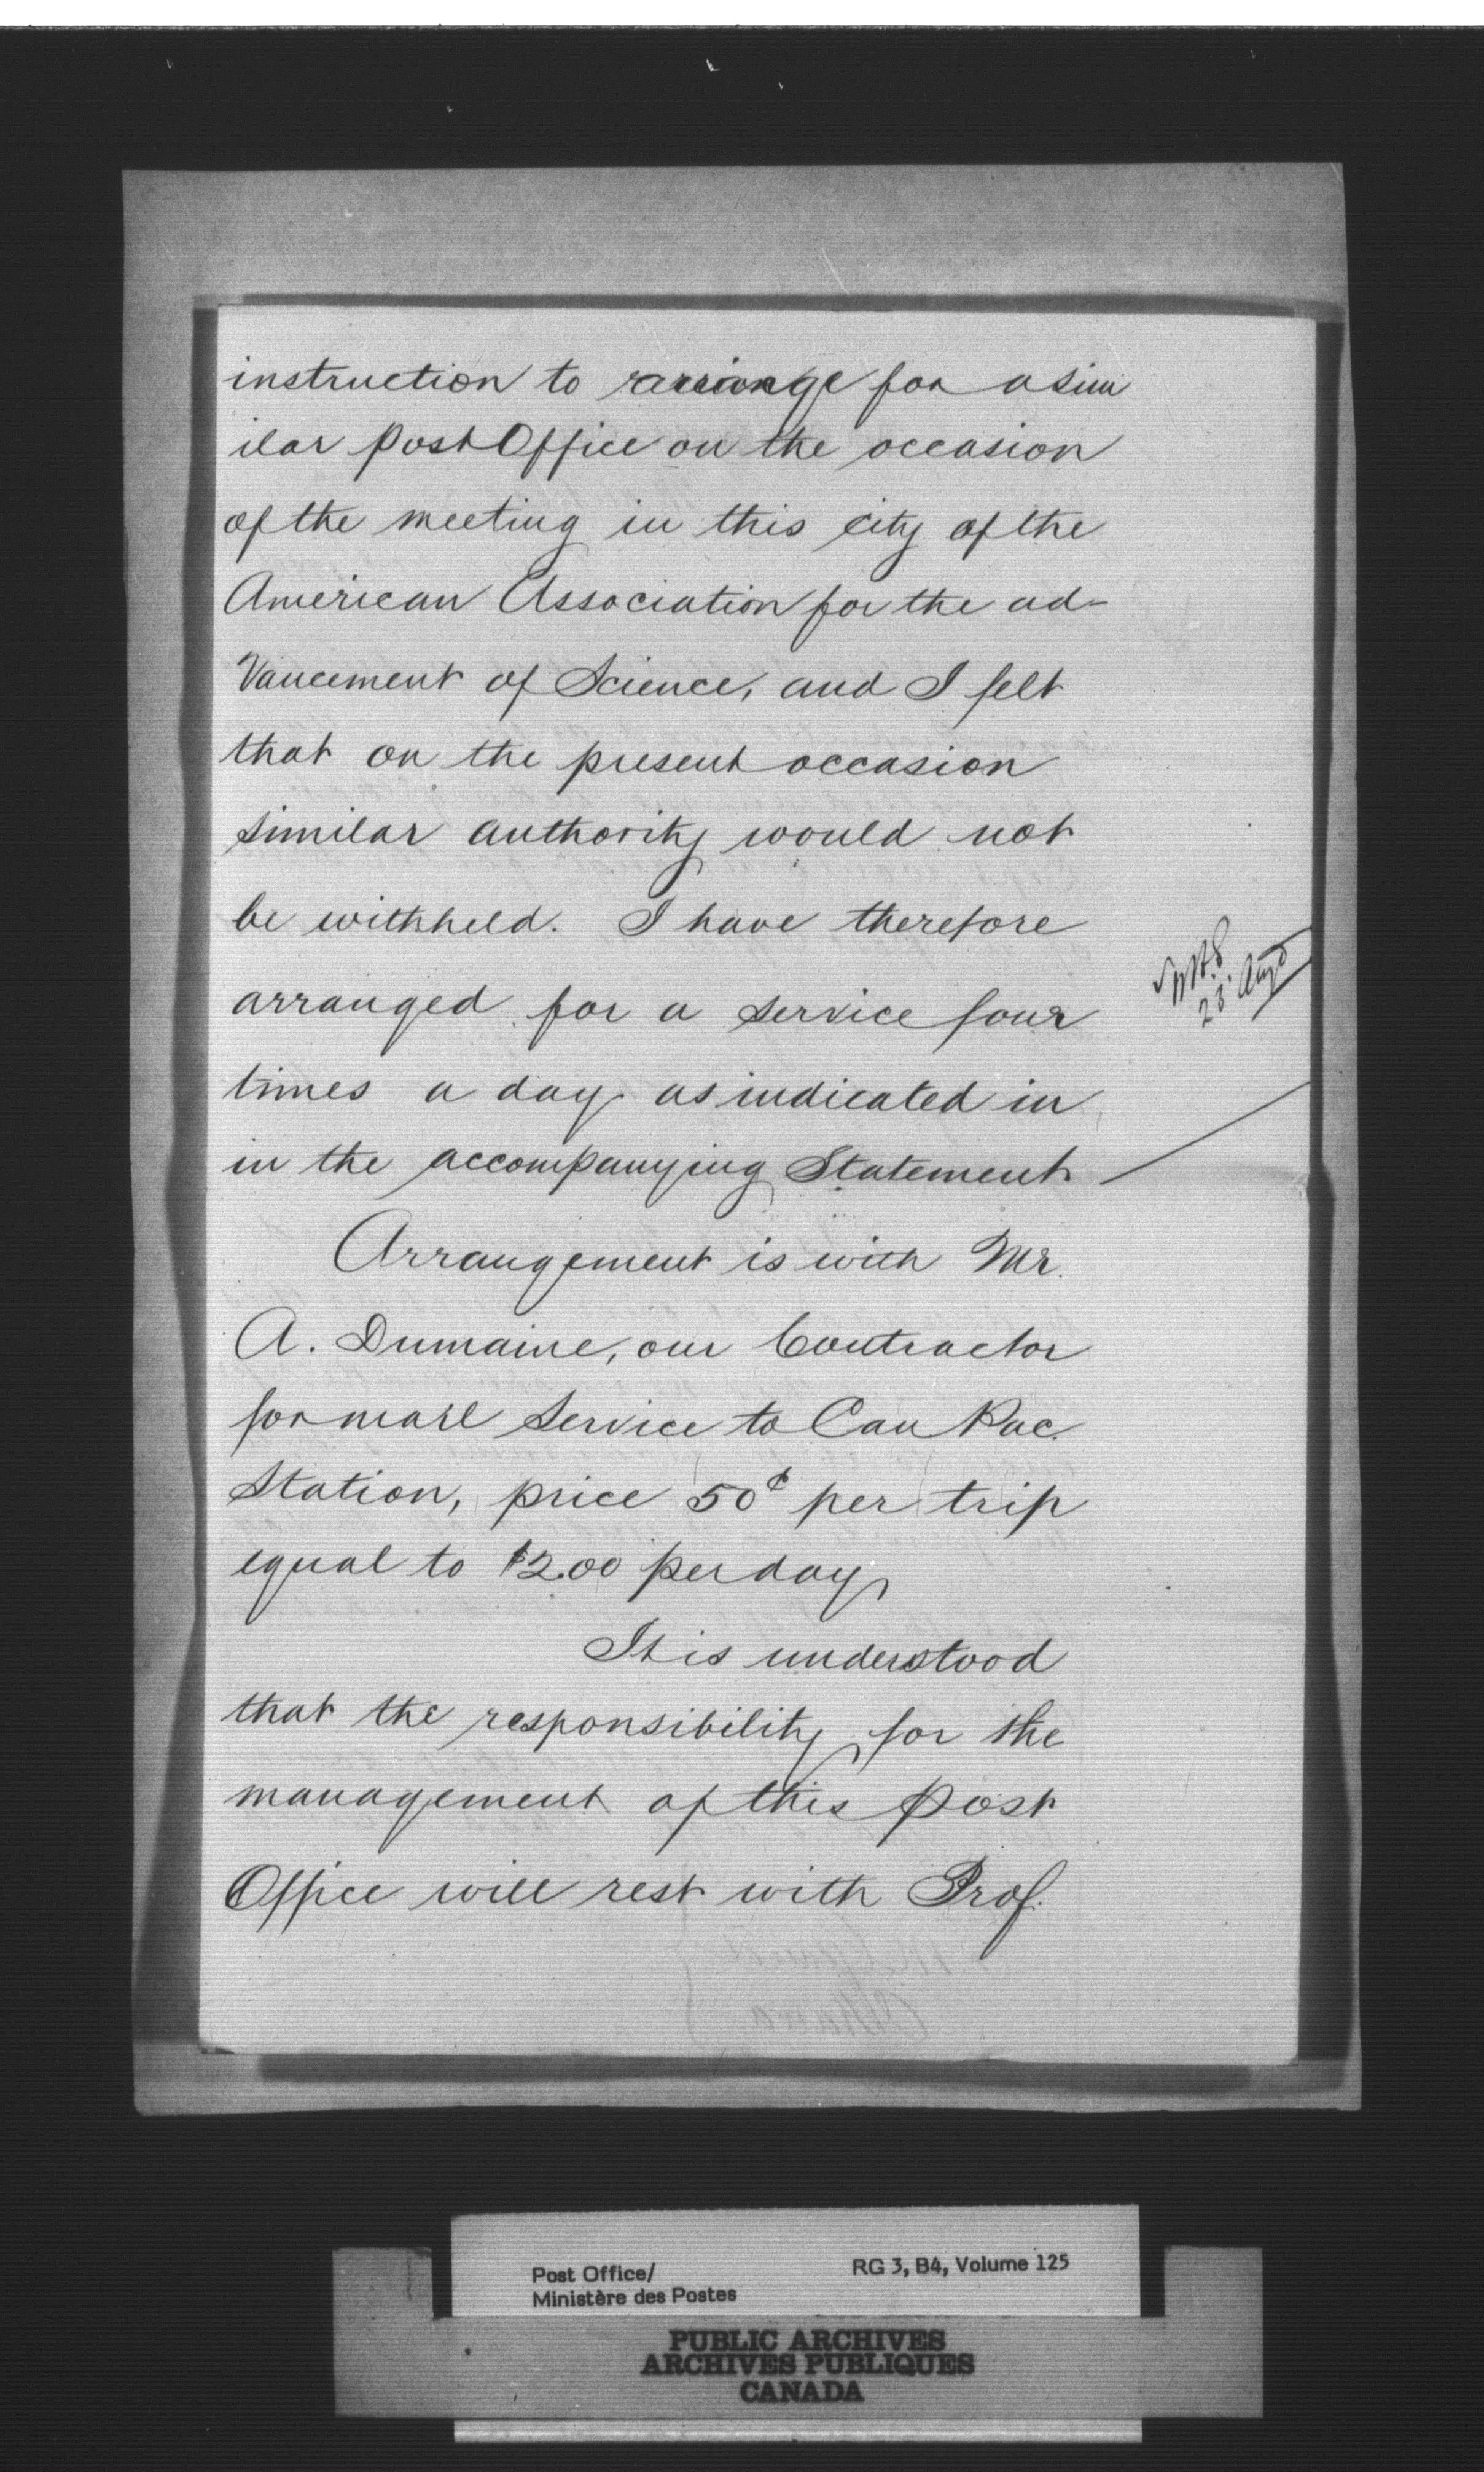 instruction to arrange for a sim
ilar Post Office on the occasion
of the meeting in this city of the
American Association for the ad-
vancement of Science, and I felt
that on the present occasion
similar authority would not
be withheld. I have therefore
arranged for a service four
times a day as indicated in
in the accompanying Statement
Arrangement is with Mr.
A. Dumaine, our Contractor
for mail service to Can Pac.
Station, price 50¢ per trip
equal to $2.00 per day
It is understood
that the responsibility for the
management of this Post
Office will rest with Prof.
23. Aug
Post Office/
Ministère des Postes
RG 3, B4, Volume 125
PUBLIC ARCHIVES
ARCHIVES PUBLIQUES
CANADA